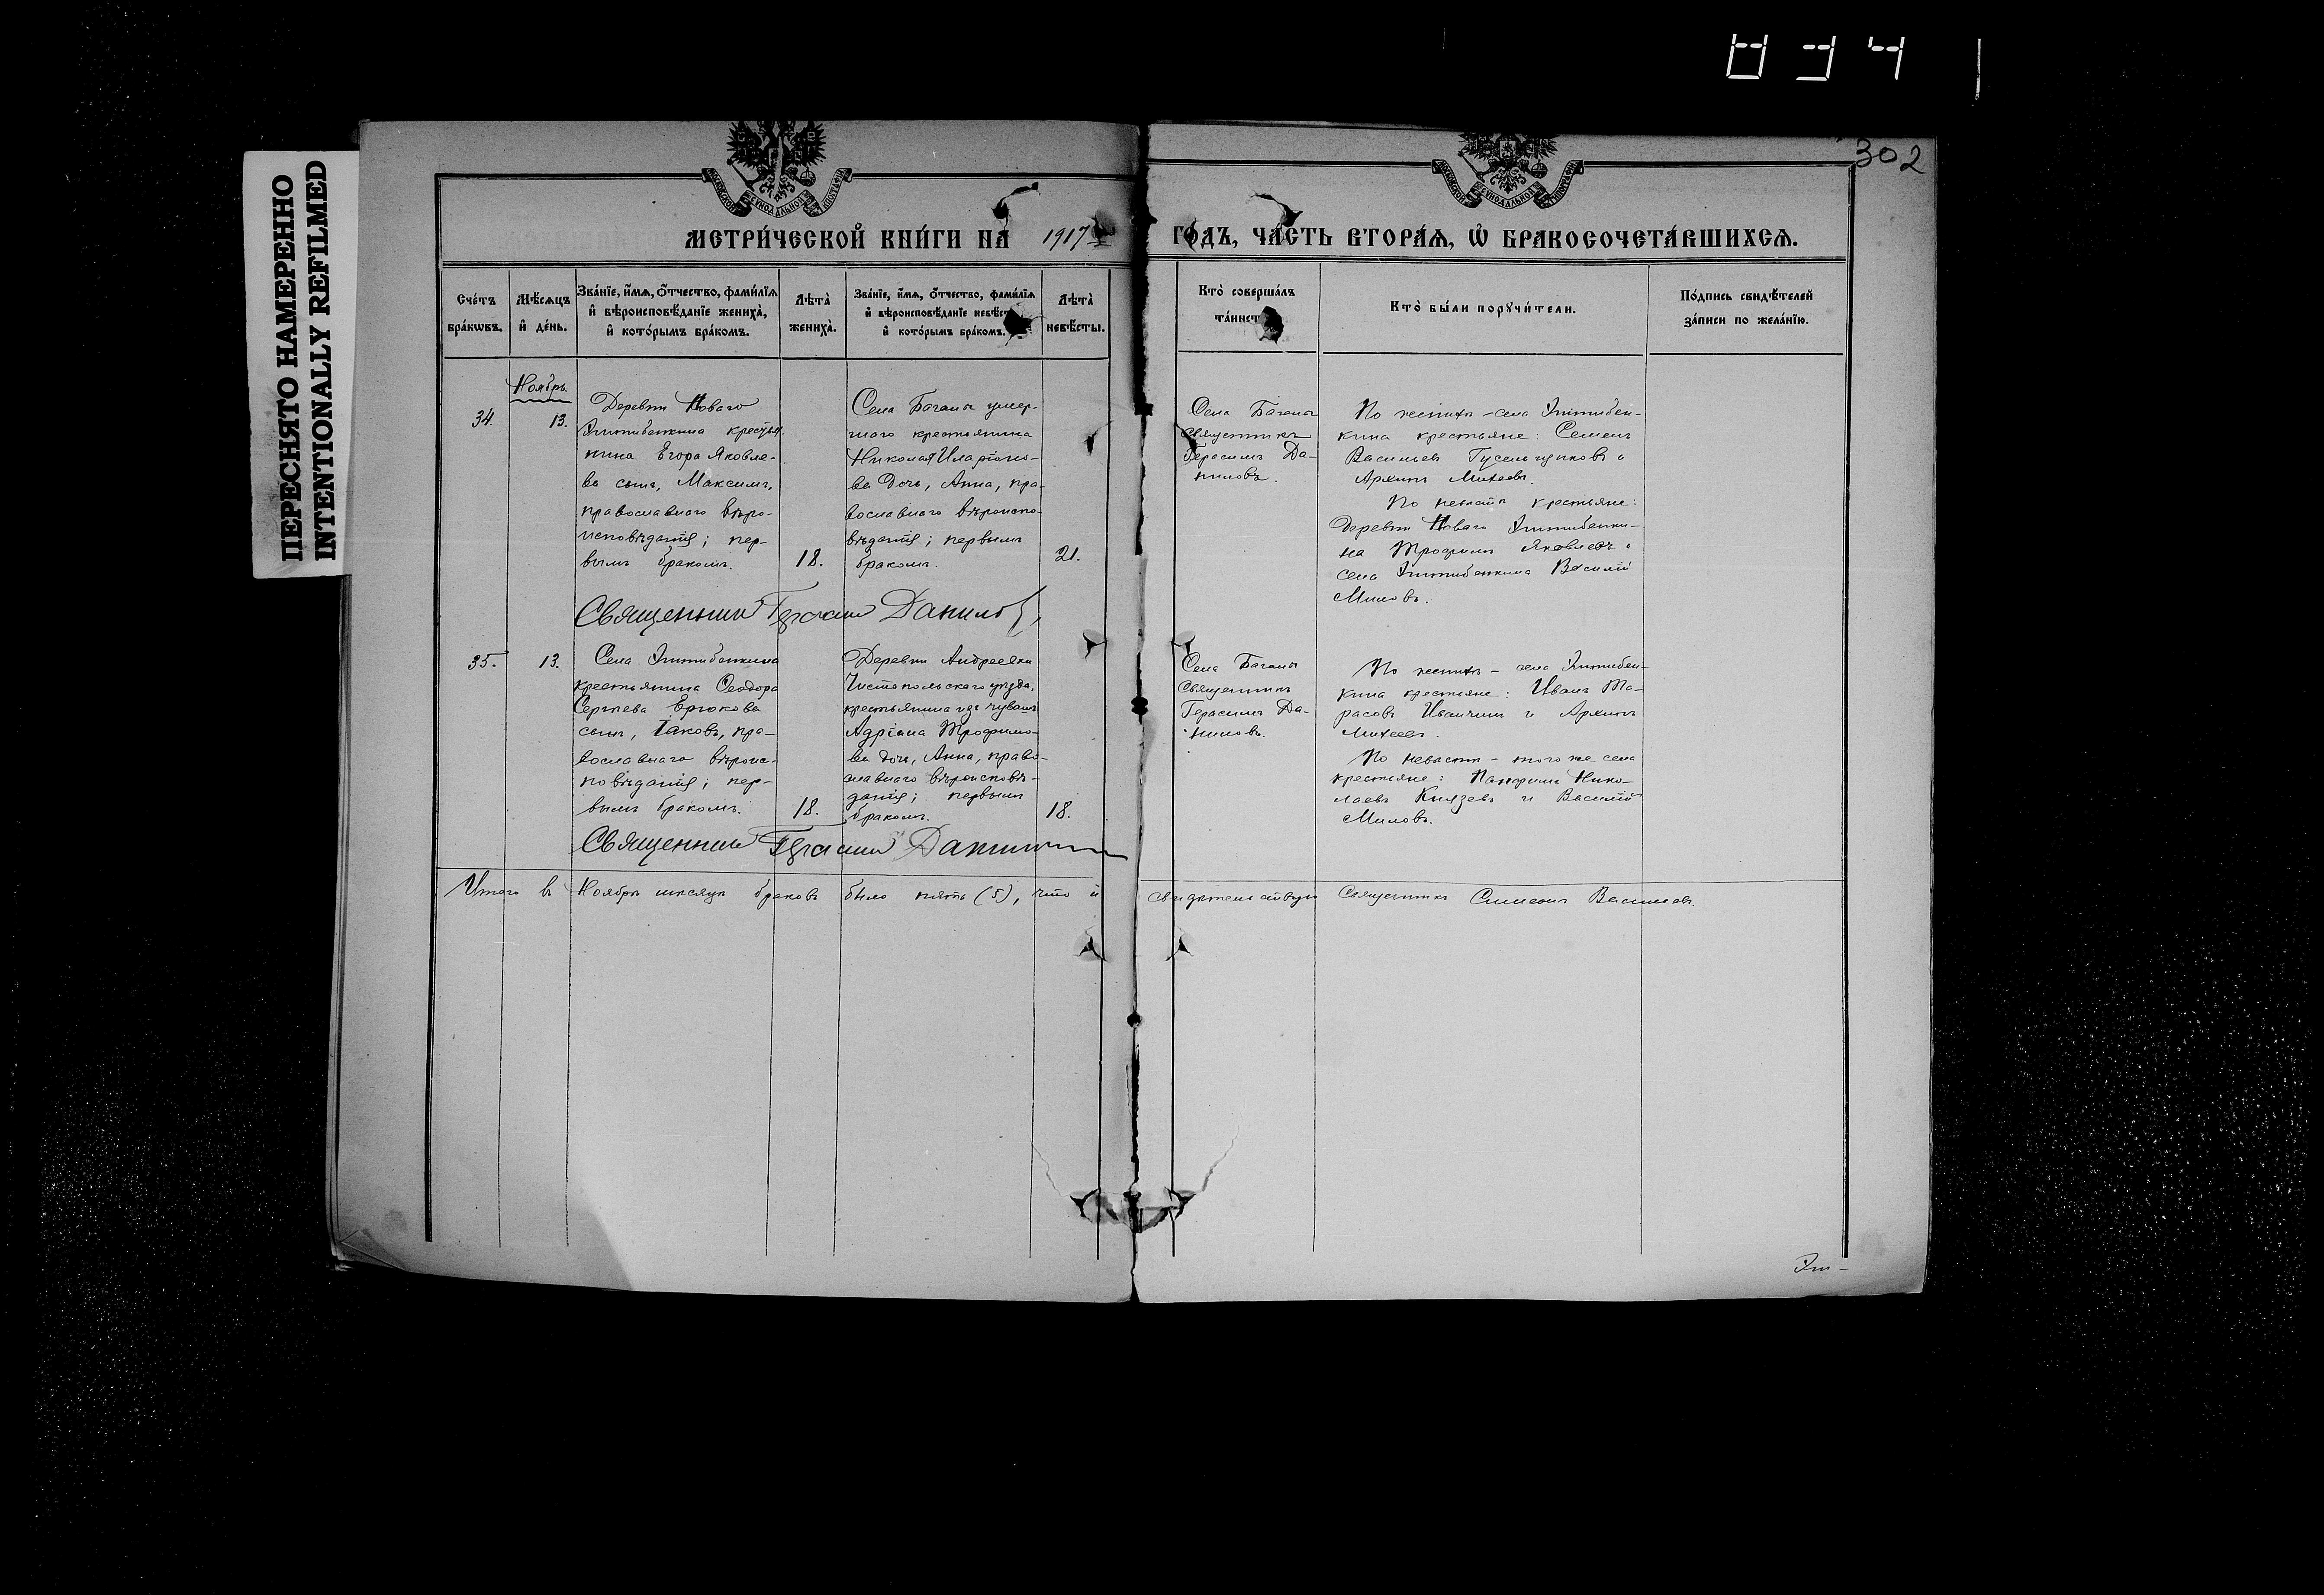 ПЕРЕСНЯТО НАМЕРЕННО
INTENTIONALLY REFILMED
034
302
МЕТРИ́ЧЕСКОЙ КНИ́ГИ НА 1917 г.
ГО́ДЪ, ЧА́СТЬ ВТОРА́Ѧ, Ѡ҆ БРАКОСОЧЕТА́ВШИХСѦ.
Сче́тъ
бра́кѡвъ.
Мѣ́сѧцъ
и҆ де́нь.
Зва́нїе, и҆́мѧ, ѻ҆́тчество, фами́лїѧ
и҆ вѣроисповѣ́данїе жениха̀,
и҆ кото́рымъ бра́комъ.
Лѣта̀
жениха̀.
Зва́нїе, и҆́мѧ, ѻ҆́тчество, фами́лїѧ
и҆ вѣроисповѣ́данїе невѣ́ст
и҆ кото́рымъ бра́комъ.
Лѣта̀
невѣ́сты.
Кто̀ соверша́лъ
та́инст
Кто̀ бы́ли порꙋчи́тели.
По́дпись свидѣ́телей
за́писи по жела́нїю.
Ноябрь.
34.
13.
Деревни Новаго
Эштебенкина крестья-
нина Егора Яковле-
ва сынъ, Максимъ,
православнаго вѣро-
исповѣданія; пер-
вымъ бракомъ.
18.
Села Баганы умер-
шаго крестьянина
Николая Иларіоно-
ва дочь, Анна, пра-
вославнаго вѣроиспо-
вѣданія; первымъ
бракомъ.
21.
Села Баганы
священникъ
Герасимъ Да-
ниловъ.
По женихѣ - села Эштебен-
кина крестьяне: Семенъ
Васильевъ Гусельщиковъ и
Архипъ Михеевъ.
По невѣстѣ крестьяне:
деревни Новаго Эштебенки-
на Трофимъ Яковлевъ и
села Эштебенкина Василій
Миловъ.
Священникъ Герасимъ Даниловъ
35.
13.
Села Эштебенкина
крестьянина Ѳеодора
Сергѣева Ерюкова
сынъ, Іаковъ, пра-
вославнаго вѣроис-
повѣданія; пер-
вымъ бракомъ.
18.
Деревни Андреевки
Чистопольскаго уѣзда,
крестьянина изъ чувашъ
Адріана Трофимо-
ва дочь, Анна, право-
славнаго вѣроисповѣ-
данія; первымъ
бракомъ.
18.
Села Баганы
священникъ
Герасимъ Да-
ниловъ.
По женихѣ - села Эштебен-
кина крестьяне: Иванъ Та-
расовъ Иванчинъ и Архипъ
Михеевъ.
По невѣстѣ - того же села
крестьяне: Панфилъ Нико-
лаевъ Князевъ и Василій
Миловъ.
Священникъ Герасимъ Даниловъ
Итого въ Ноябрѣ мѣсяцѣ браковъ было пять (5), что и свидѣтельствую Священникъ Симеонъ Васильевъ.